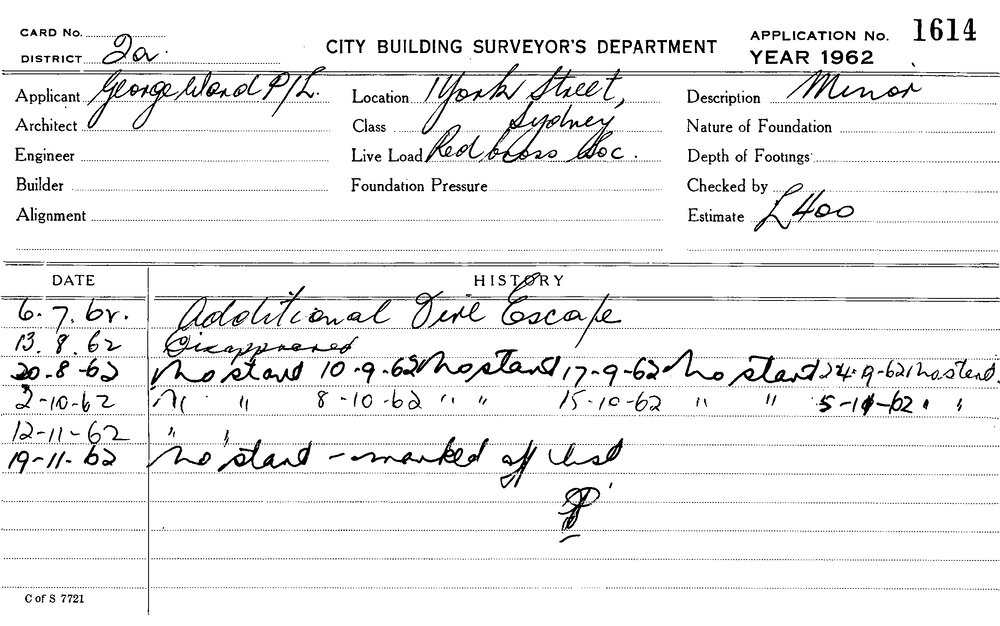 CARD No. CITY BUILDING SURVEYOR'S DEPARTMENT APPLICATION No. 1614
DISTRICT 2a. YEAR 1962
Applicant George Ward P/L. Location 1 York Street, Description Minor
Architect Class Sydney Nature of Foundation
Engineer Live Load Red Cross Soc. Depth of Footings
Builder Foundation Pressure Checked by
Alignment Estimate £400
DATE HISTORY
6.7.62. Additional Fire Escape
13.8.62 Disapproved
20-8-62 No start 10-9-62 No start 17-9-62 No start 24-9-62 No start.
2-10-62 " " 8-10-62 " " 15-10-62 " " 5-11-62 " "
12-11-62 " "
19-11-62 No start - marked off list
C of S 7721